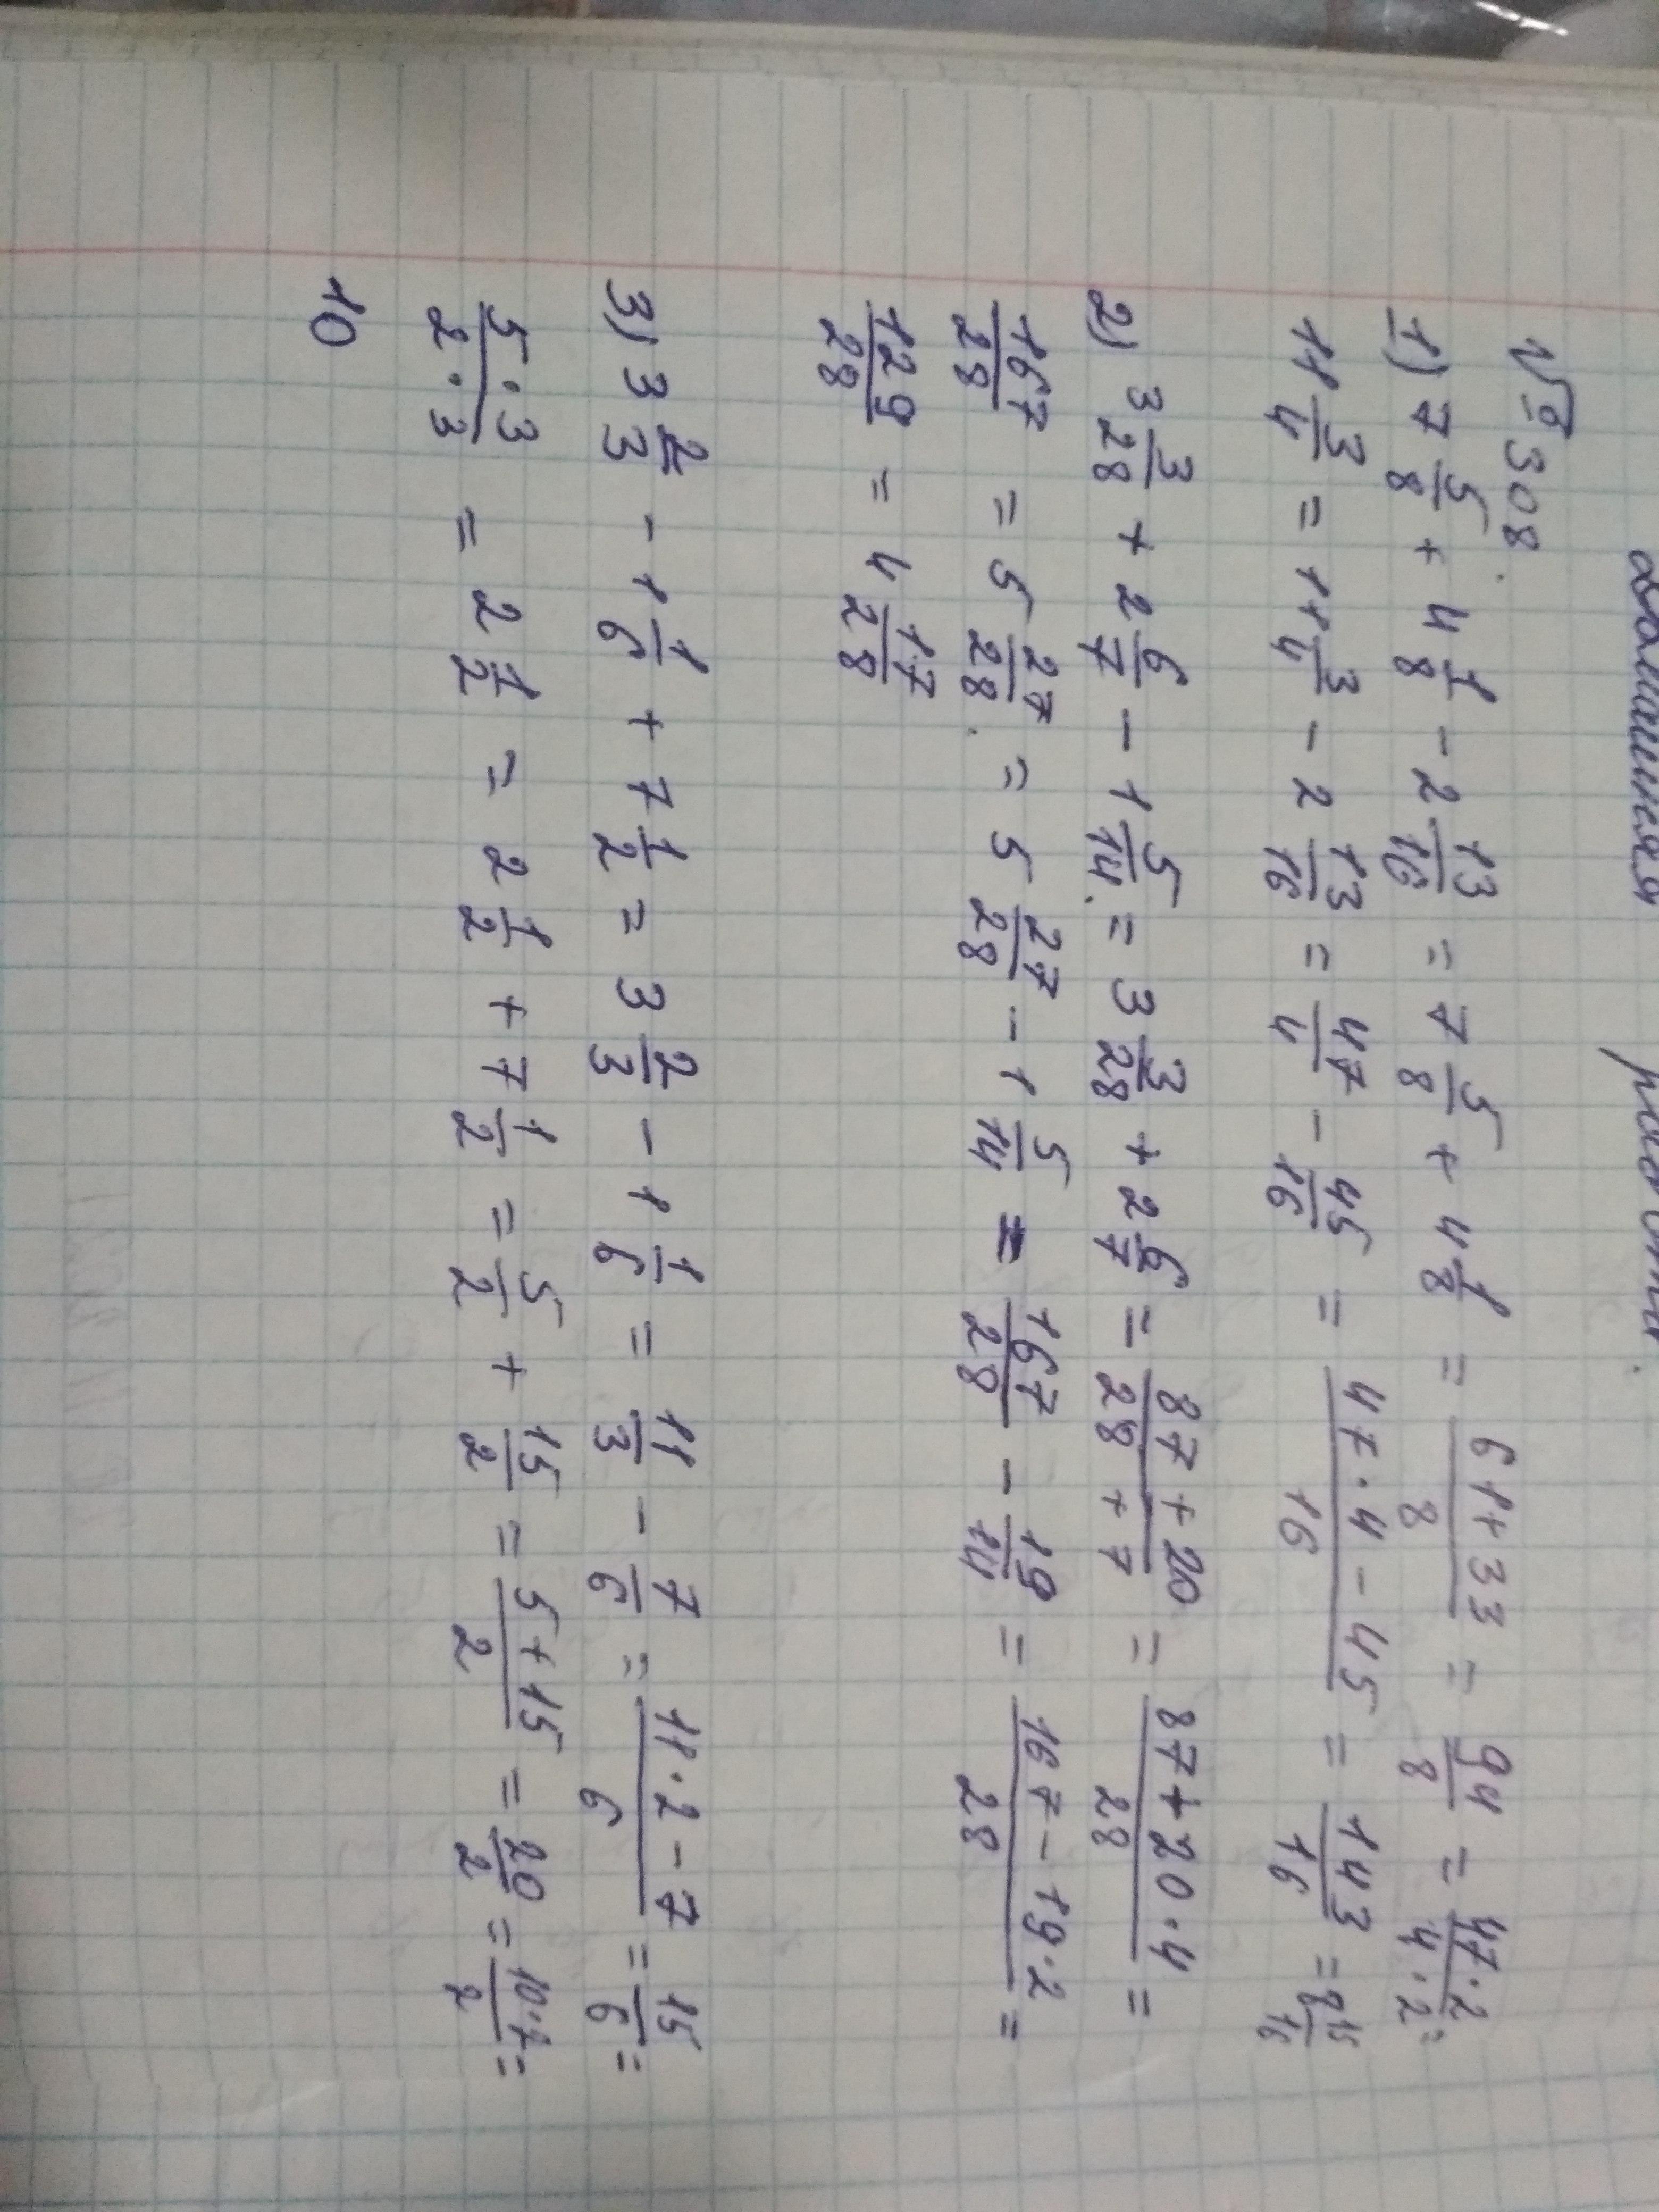 домашняя работа.
№ 308.
1) 7 5/8 + 4 1/8 - 2 13/16 = 7 5/8 + 4 1/8 = 61+33/8 = 94/8 = 47·2/4·2 =
11 3/4 = 11 3/4 - 2 13/16 = 47/4 - 45/16 = 47·4-45/16 = 143/16 = 8 15/16
2) 3 3/28 + 2 6/7 - 1 5/14 = 3 3/28 + 2 6/7 = 87+20/28+7 = 87+20·4/28 =
167/28 = 5 27/28 = 5 27/28 - 1 5/14 = 167/28 - 19/14 = 167-19·2/28 =
129/28 = 4 17/28
3) 3 2/3 - 1 1/6 + 7 1/2 = 3 2/3 - 1 1/6 = 11/3 - 7/6 = 11·2-7/6 = 15/6 =
5·3/2·3 = 2 1/2 = 2 1/2 + 7 1/2 = 5/2 + 15/2 = 5+15/2 = 20/2 = 10·2/2 =
10